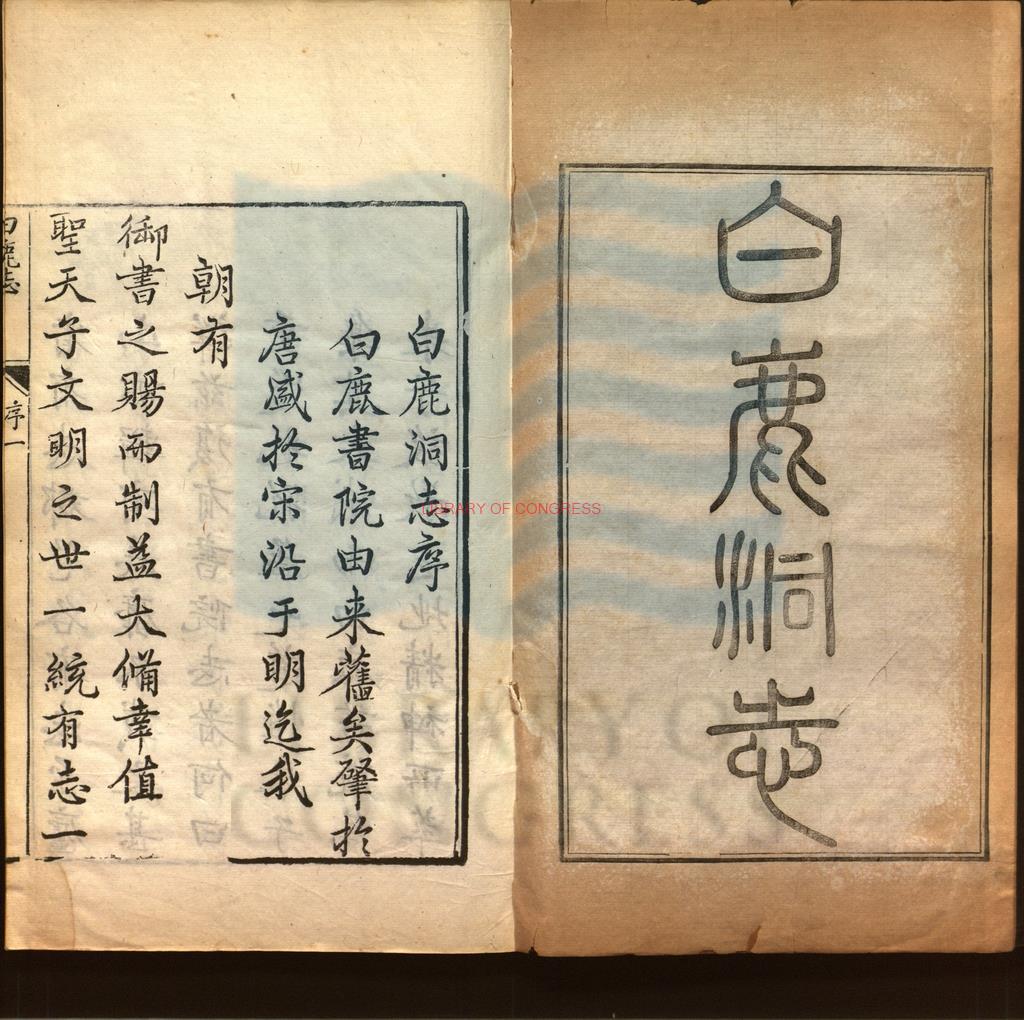 白鹿洞志
白鹿洞志序
白鹿書院由来舊矣肇扵
唐盛扵宋沿于明迄我
朝有
御書之賜而制益大備幸值
聖天子文明之世一統有志一
白鹿志
序一
LIBRARY OF CONGRESS